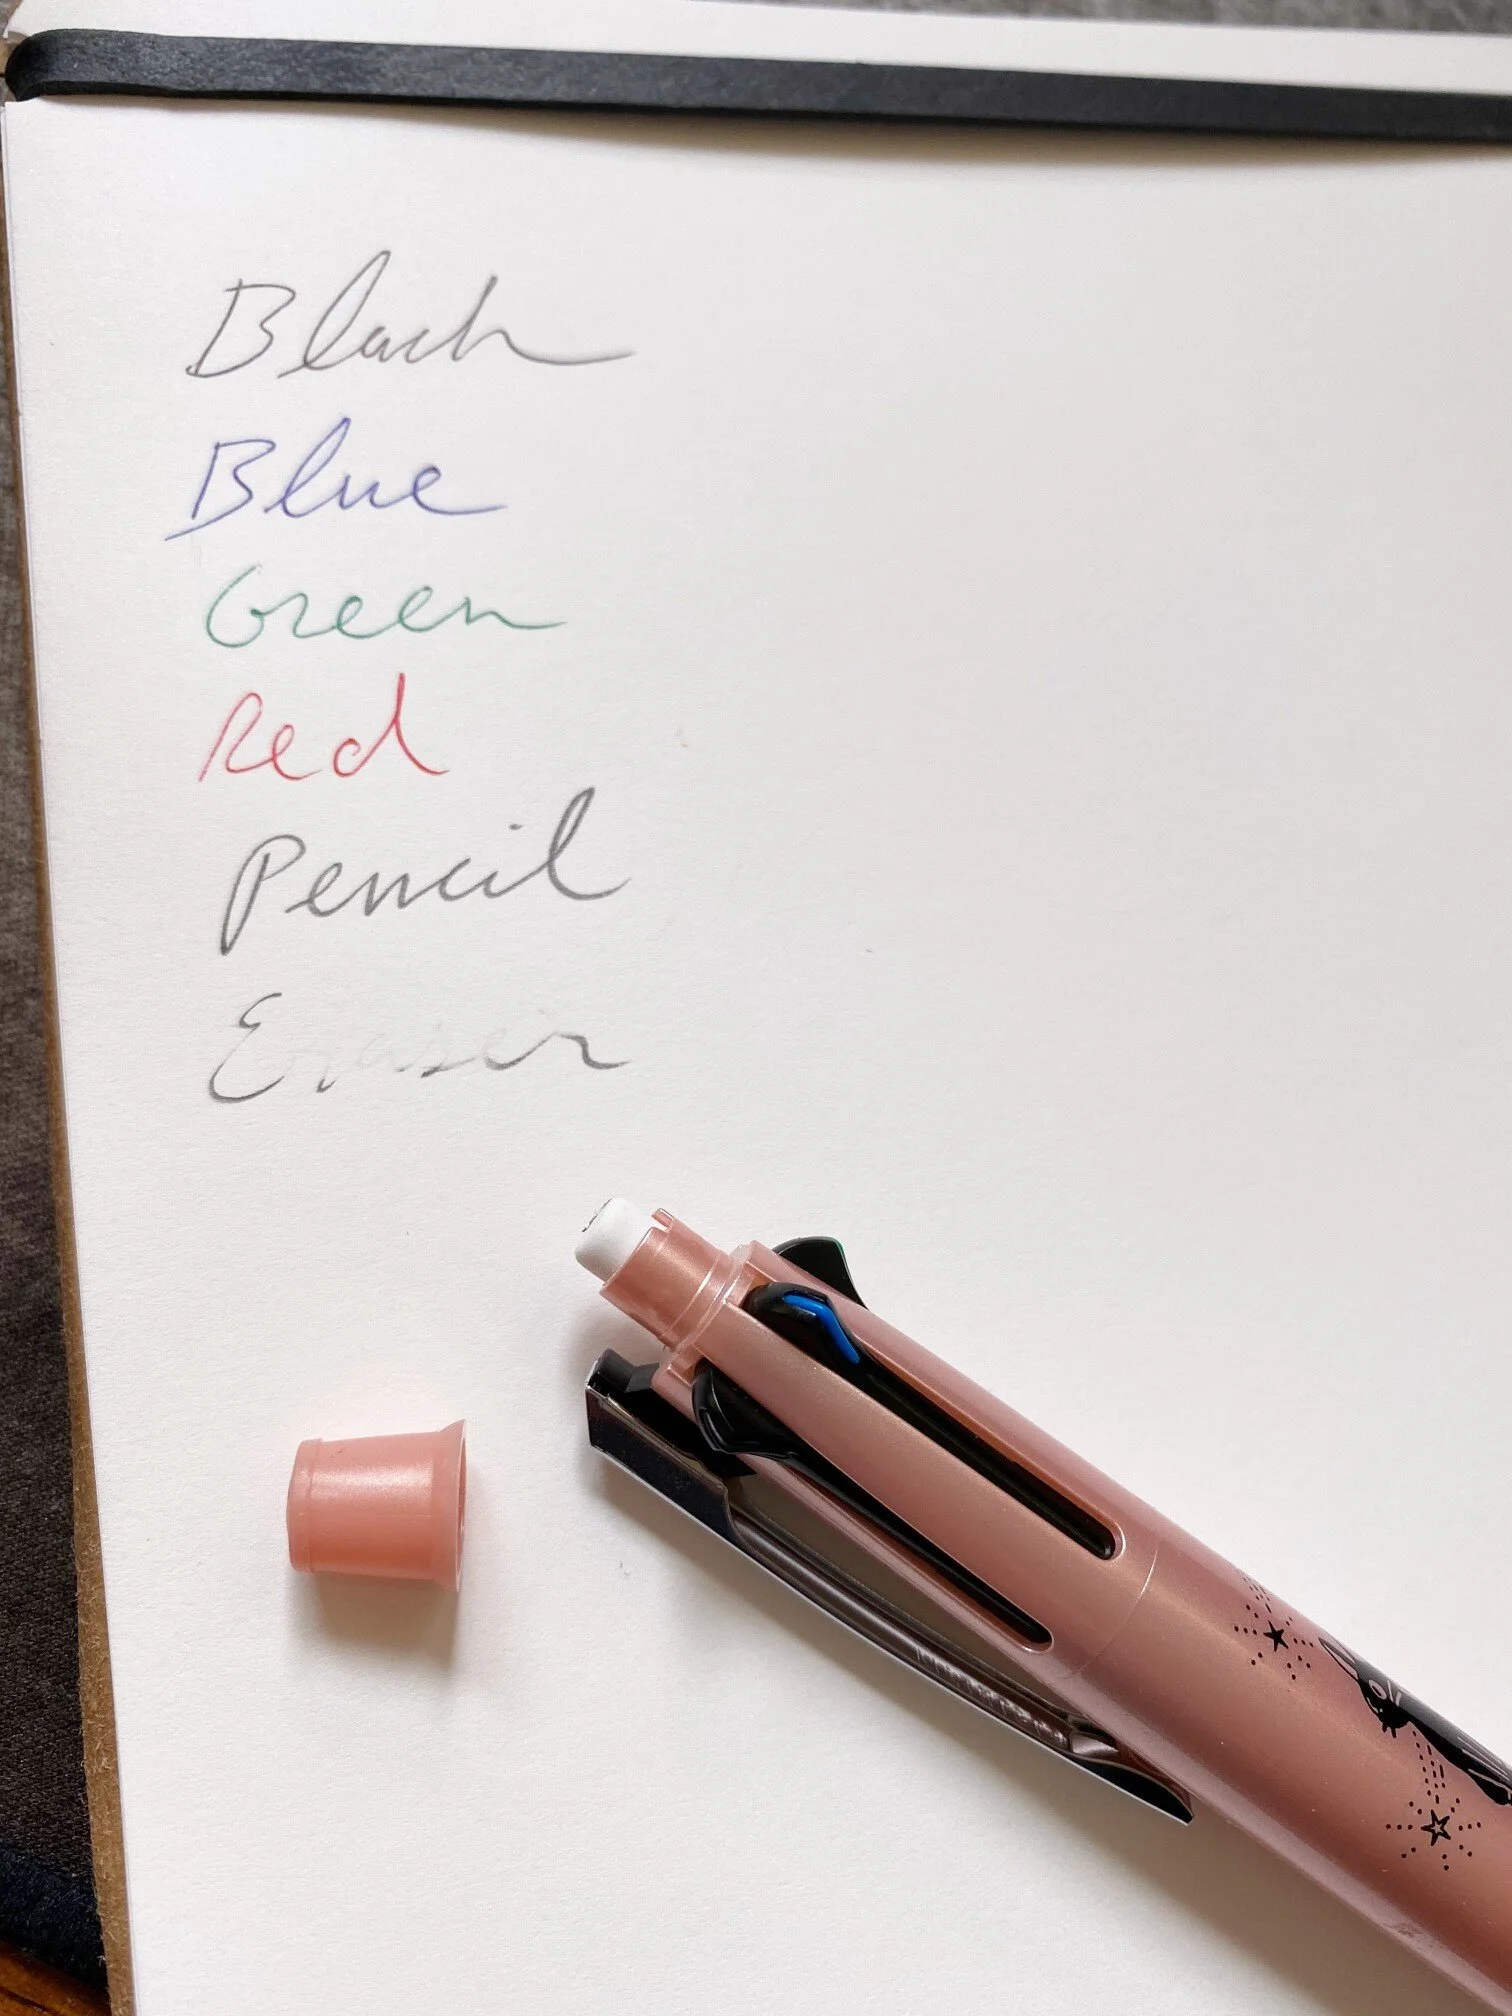 Black
Blue
Green
Red
Pencil
Eraser